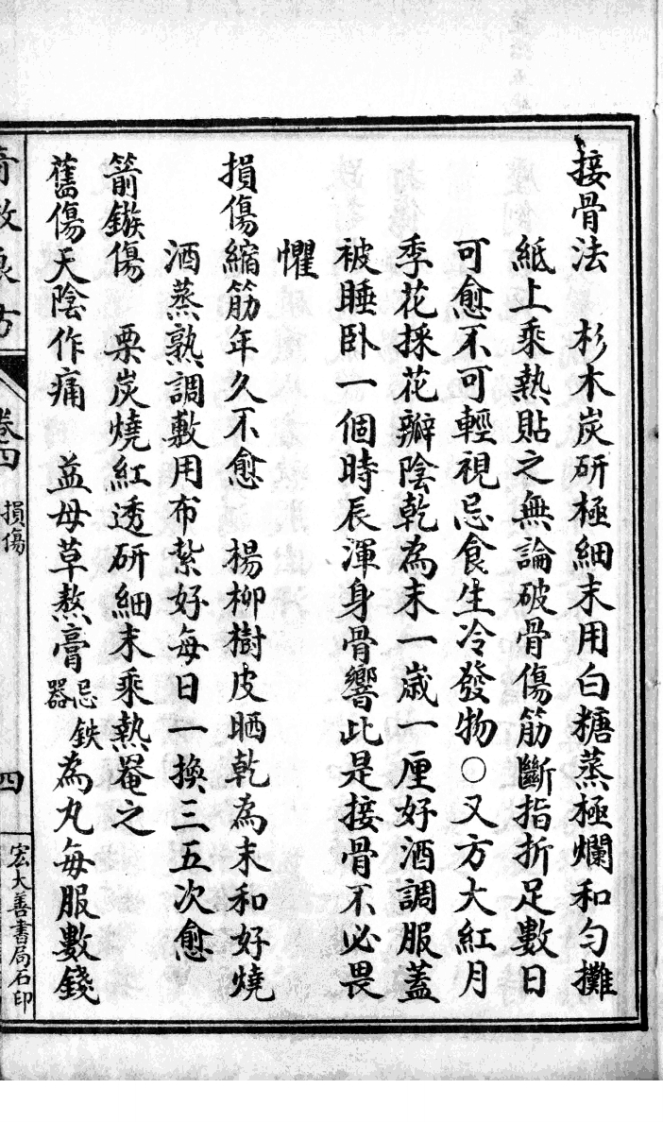 接骨法　杉木炭研極細末用白糖蒸極爛和勻攤
紙上乘熱貼之無論破骨傷筋斷指折足數日
可愈不可輕視忌食生冷發物○又方大紅月
季花採花瓣陰乾為末一歲一厘好酒調服蓋
被睡卧一個時辰渾身骨響此是接骨不必畏
懼
損傷縮筋年久不愈　楊柳樹皮晒乾為末和好燒
酒蒸熟調敷用布紮好每日一換三五次愈
箭鏃傷　栗炭燒紅透研細末乘熱罨之
舊傷天陰作痛　益母草熬膏忌鉄器為丸每服數錢
卷四
損傷
四
宏大善書局石印